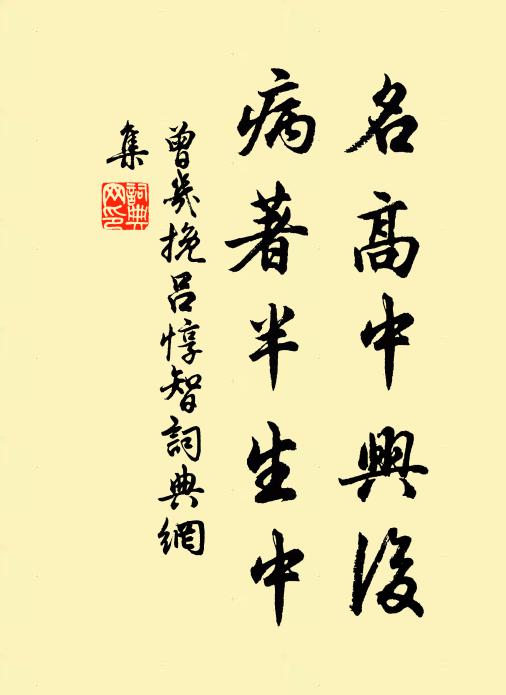 名高中興後
病著半生中
曾幾挽呂惇智詞典網
集
詞典
网印